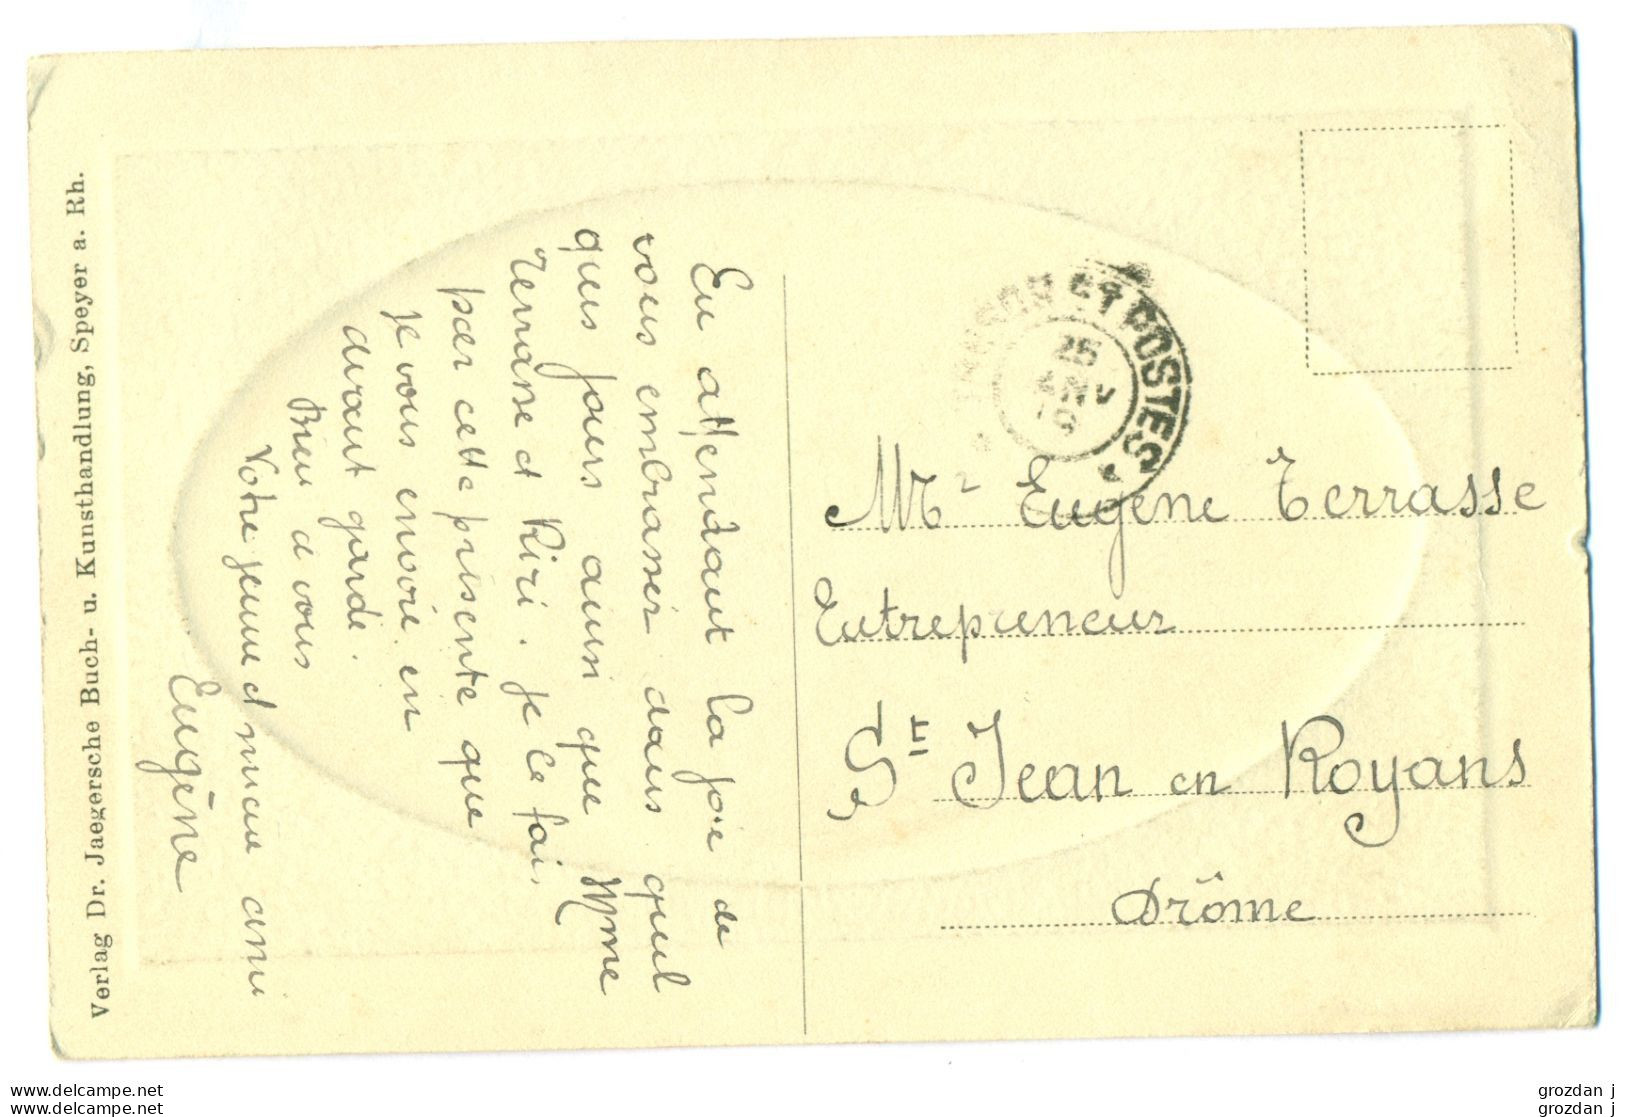 Verlag Dr. Jaegersche Buch- u. Kunsthandlung, Speyer a. Rh.
En attendant la joie de
vous embrasser dans quel
ques jours ainsi que Mme
Terrasse et Kiri. je le fais
par cette présente que
je vous envoie en
avant garde.
Bien a vous
Votre jeune et mieux ami
Eugène
ET POSTES
Mr Eugène Terrasse
Entrepreneur
St Jean en Royans
Drôme
www.delcampe.net
www.delcampe.net
grozdan j
grozdan j